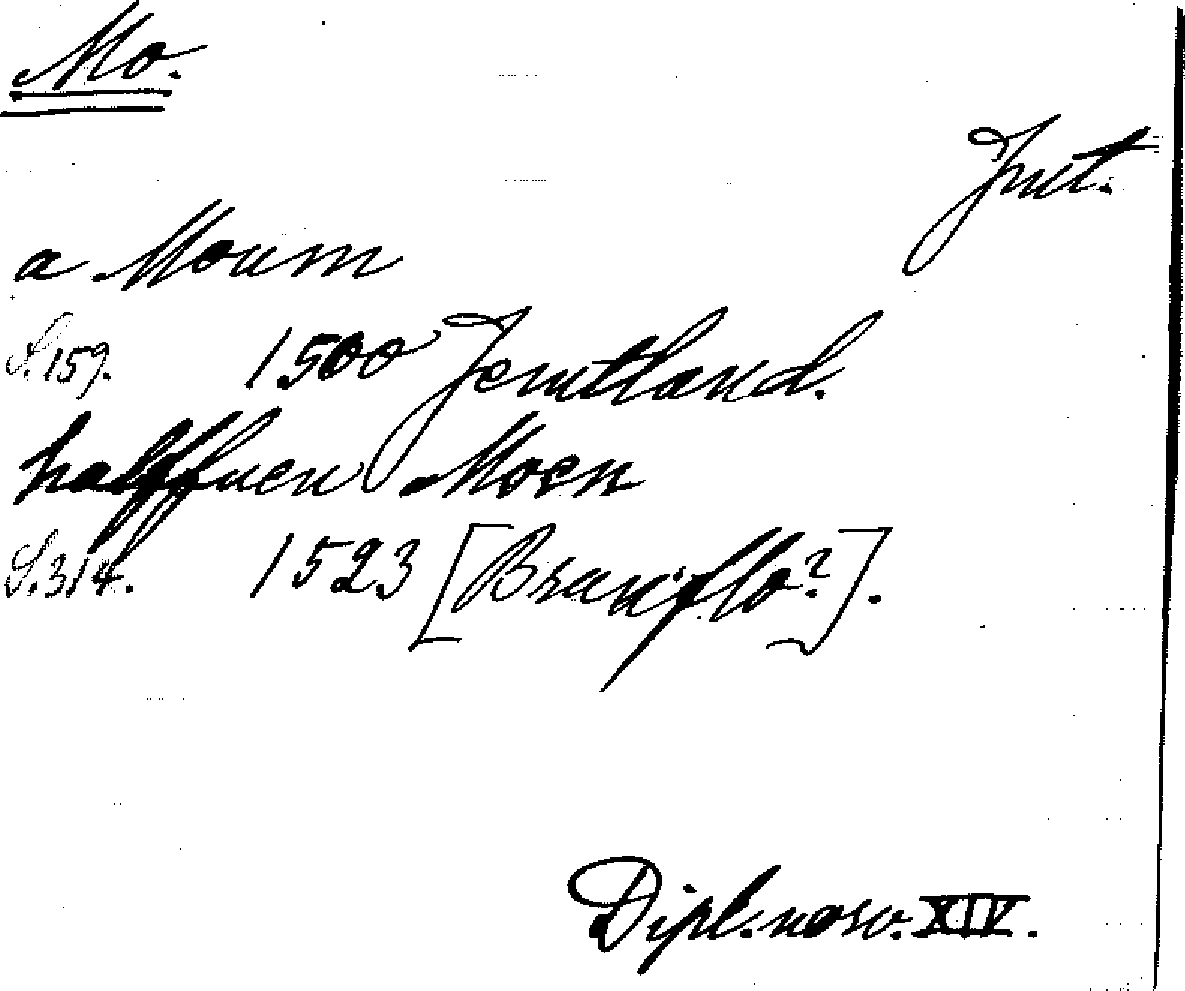 Mo.
Jmt.
a Moum
S. 159. 1500 Jemtland.
halffuen Moen
S. 314. 1523 [Brunflo?].
Dipl. norv. XIV.